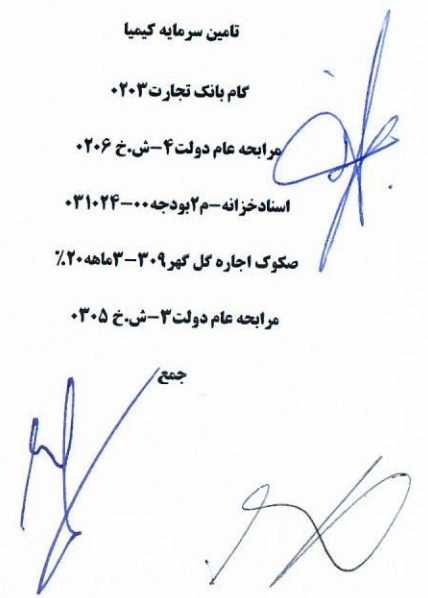 تامین سرمایه کیمیا
گام بانک تجارت۰۲۰۳
مرابحه عام دولت۴-ش.خ ۰۲۰۶
اسنادخزانه-م۲بودجه۰۰-۰۳۱۰۲۴
صکوک اجاره گل گهر۳۰۹-۳ماهه۲۰%
مرابحه عام دولت۳-ش.خ ۰۳۰۵
جمع